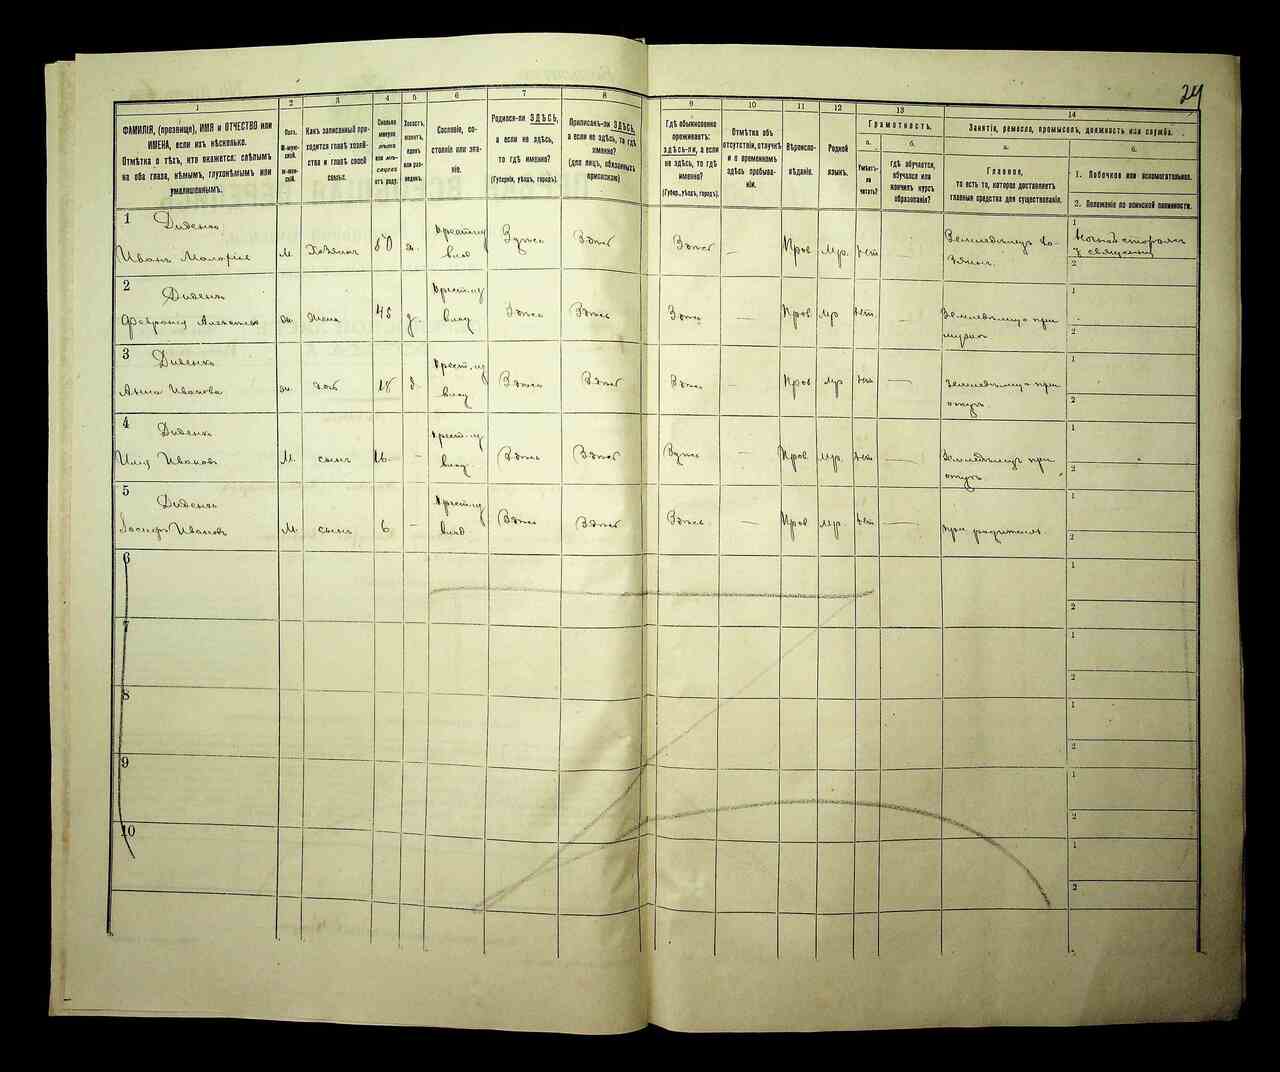 24
1 2 3 4 5 6 7 8 9 10 11 12 13 14
ФАМИЛІЯ, (прозвище), ИМЯ и ОТЧЕСТВО или
ИМЕНА, если ихъ нѣсколько.
Отмѣтка о тѣхъ, кто окажется: слѣпымъ
на оба глаза, нѣмымъ, глухонѣмымъ или
умалишеннымъ.
Полъ.
М-муж-
ской.
Ж-жен-
скій.
Какъ записанный при-
ходится главѣ хозяй-
ства и главѣ своей
семьи.
Сколько
минуло
лѣтъ
или мѣ-
сяцевъ
отъ роду.
Холостъ,
женатъ,
вдовъ
или раз-
веденъ.
Сословіе, со-
стояніе или зва-
ніе.
Родился-ли ЗДѢСЬ,
а если не здѣсь,
то гдѣ именно?
(Губернія, уѣздъ, городъ).
Приписанъ-ли ЗДѢСЬ,
а если не здѣсь, то гдѣ
именно?
(для лицъ, обязанныхъ
припискою)
Гдѣ обыкновенно
проживаетъ:
здѣсь-ли, а если
не здѣсь, то гдѣ
именно?
(Губер., уѣздъ, городъ).
Отмѣтка объ
отсутствіи, отлучкѣ
и о временномъ
здѣсь пребыва-
ніи.
Вѣроиспо-
вѣданіе.
Родной
языкъ.
Грамотность.
а.
Умѣетъ-
ли
читать?
б.
гдѣ обучается,
обучался или
кончилъ курсъ
образованія?
Занятія, ремесло, промыселъ, должность или служба.
а.
Главное,
то есть то, которое доставляетъ
главныя средства для существованія.
б.
1. Побочное или вспомогательное.
2. Положеніе по воинской повинности.
1 Диденко
Иванъ М. Хозяинъ 50 ж. Здѣсь Здѣсь Здѣсь — Прав мр. нет — 1 Ночной сторожъ
2
2 Диденко
ж. Жена 45 з. Здѣсь Здѣсь Здѣсь — Прав мр нет — Земледѣлецъ при 1
мужѣ 2
3 Диденко
Анна Иванова ж. доч 18 Здѣсь Здѣсь Здѣсь — Прав мр нет — земледѣлецъ при 1
отцѣ. 2
4 Диденко
Илія Ивановъ М. сынъ 16 — Здѣсь Здѣсь Здѣсь — Прав мр. нет — земледѣлецъ при 1
отцѣ 2
5 Диденко
Іосифъ Ивановъ М. сынъ 6 — Здѣсь Здѣсь Здѣсь — Прав мр. нет — при родителя. 1
2
6 1
2
7 1
2
8 1
2
9 1
2
10 1
2